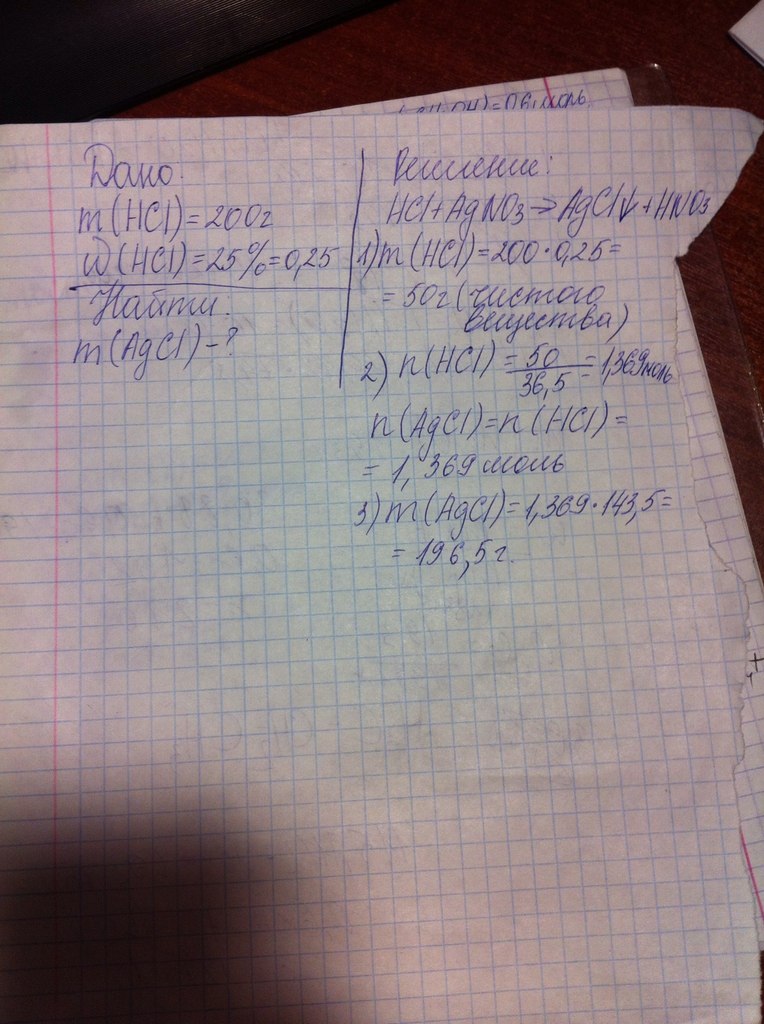 OH) = 0,6 моль.
Дано:
m(HCl) = 200г
ω(HCl) = 25% = 0,25
Найти:
m(AgCl) - ?
Решение:
HCl + AgNO₃ → AgCl↓ + HNO₃
1) m(HCl) = 200 · 0,25 =
= 50г (чистого
вещества)
2) n(HCl) = 50/36,5 = 1,369 моль
n(AgCl) = n(HCl) =
= 1,369 моль
3) m(AgCl) = 1,369 · 143,5 =
= 196,5 г.